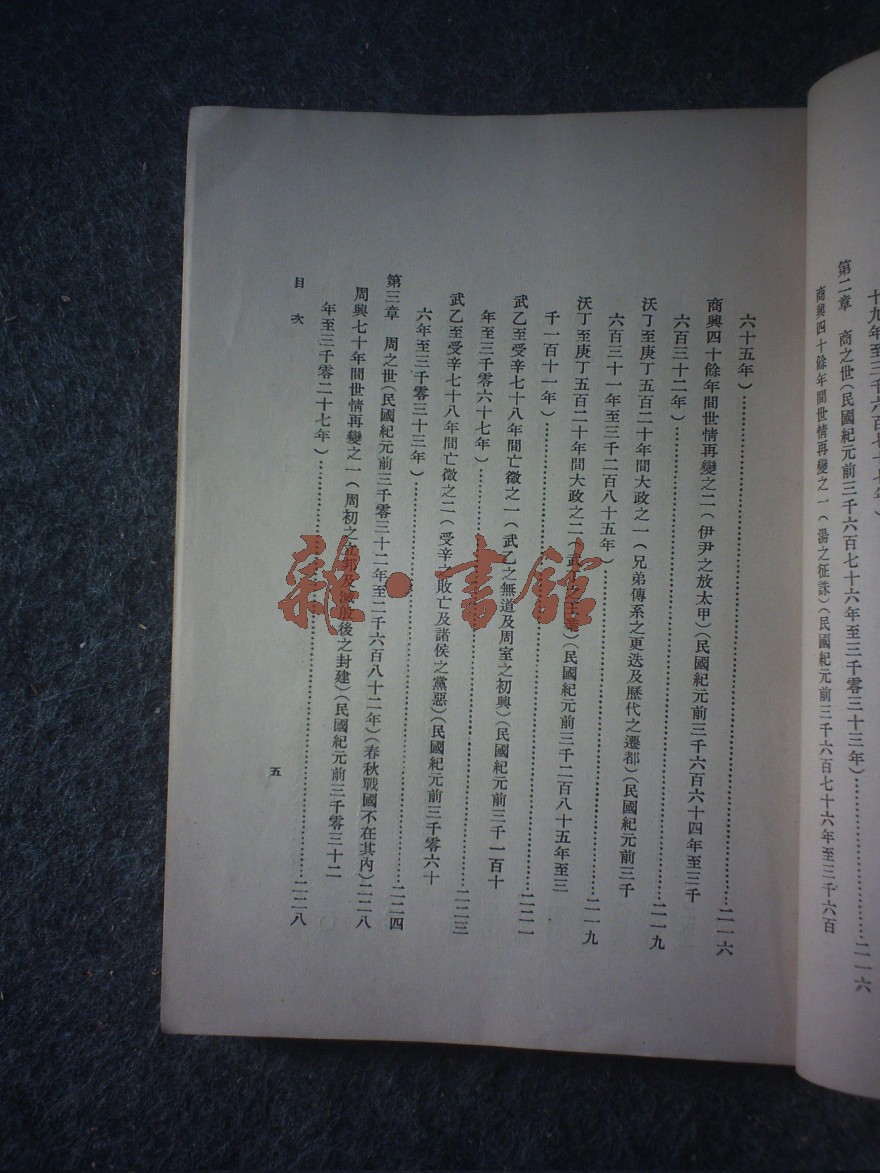 十九年至三千六百七十七年)
第二章 商之世(民國紀元前三千六百七十六年至三千零三十三年)……二一六
商興四十餘年間世情再變之一(湯之征誅)(民國紀元前三千六百七十六年至三千六百
六十五年)……二一六
商興四十餘年間世情再變之二(伊尹之放太甲)(民國紀元前三千六百六十四年至三千
六百三十二年)……二一九
沃丁至庚丁五百二十年間大政之一(兄弟傳系之更迭及歷代之遷都)(民國紀元前三千
六百三十一年至三千二百八十五年)……二一九
沃丁至庚丁五百二十年間大政之二(武業)(民國紀元前三千二百八十五年至三
千一百十一年)……二二一
武乙至受辛七十八年間亡徵之一(武乙之無道及周室之初興)(民國紀元前三千一百十
年至三千零六十七年)……二二三
武乙至受辛七十八年間亡徵之二(受辛之敗亡及諸侯之黨惡)(民國紀元前三千零六十
六年至三千零三十三年)……二二四
第三章 周之世(民國紀元前三千零三十二年至二千六百八十二年)(春秋戰國不在其內)二二八
周興七十年間世情再變之一(周初之立邦及滅殷後之封建)(民國紀元前三千零三十二
年至三千零二十七年)……二二八
目次
五
雜·書館